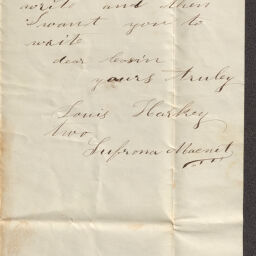 write and then
I want you to
write
dear Cosin
yours truley
Louis Harkey
two
Sufrona Macnit